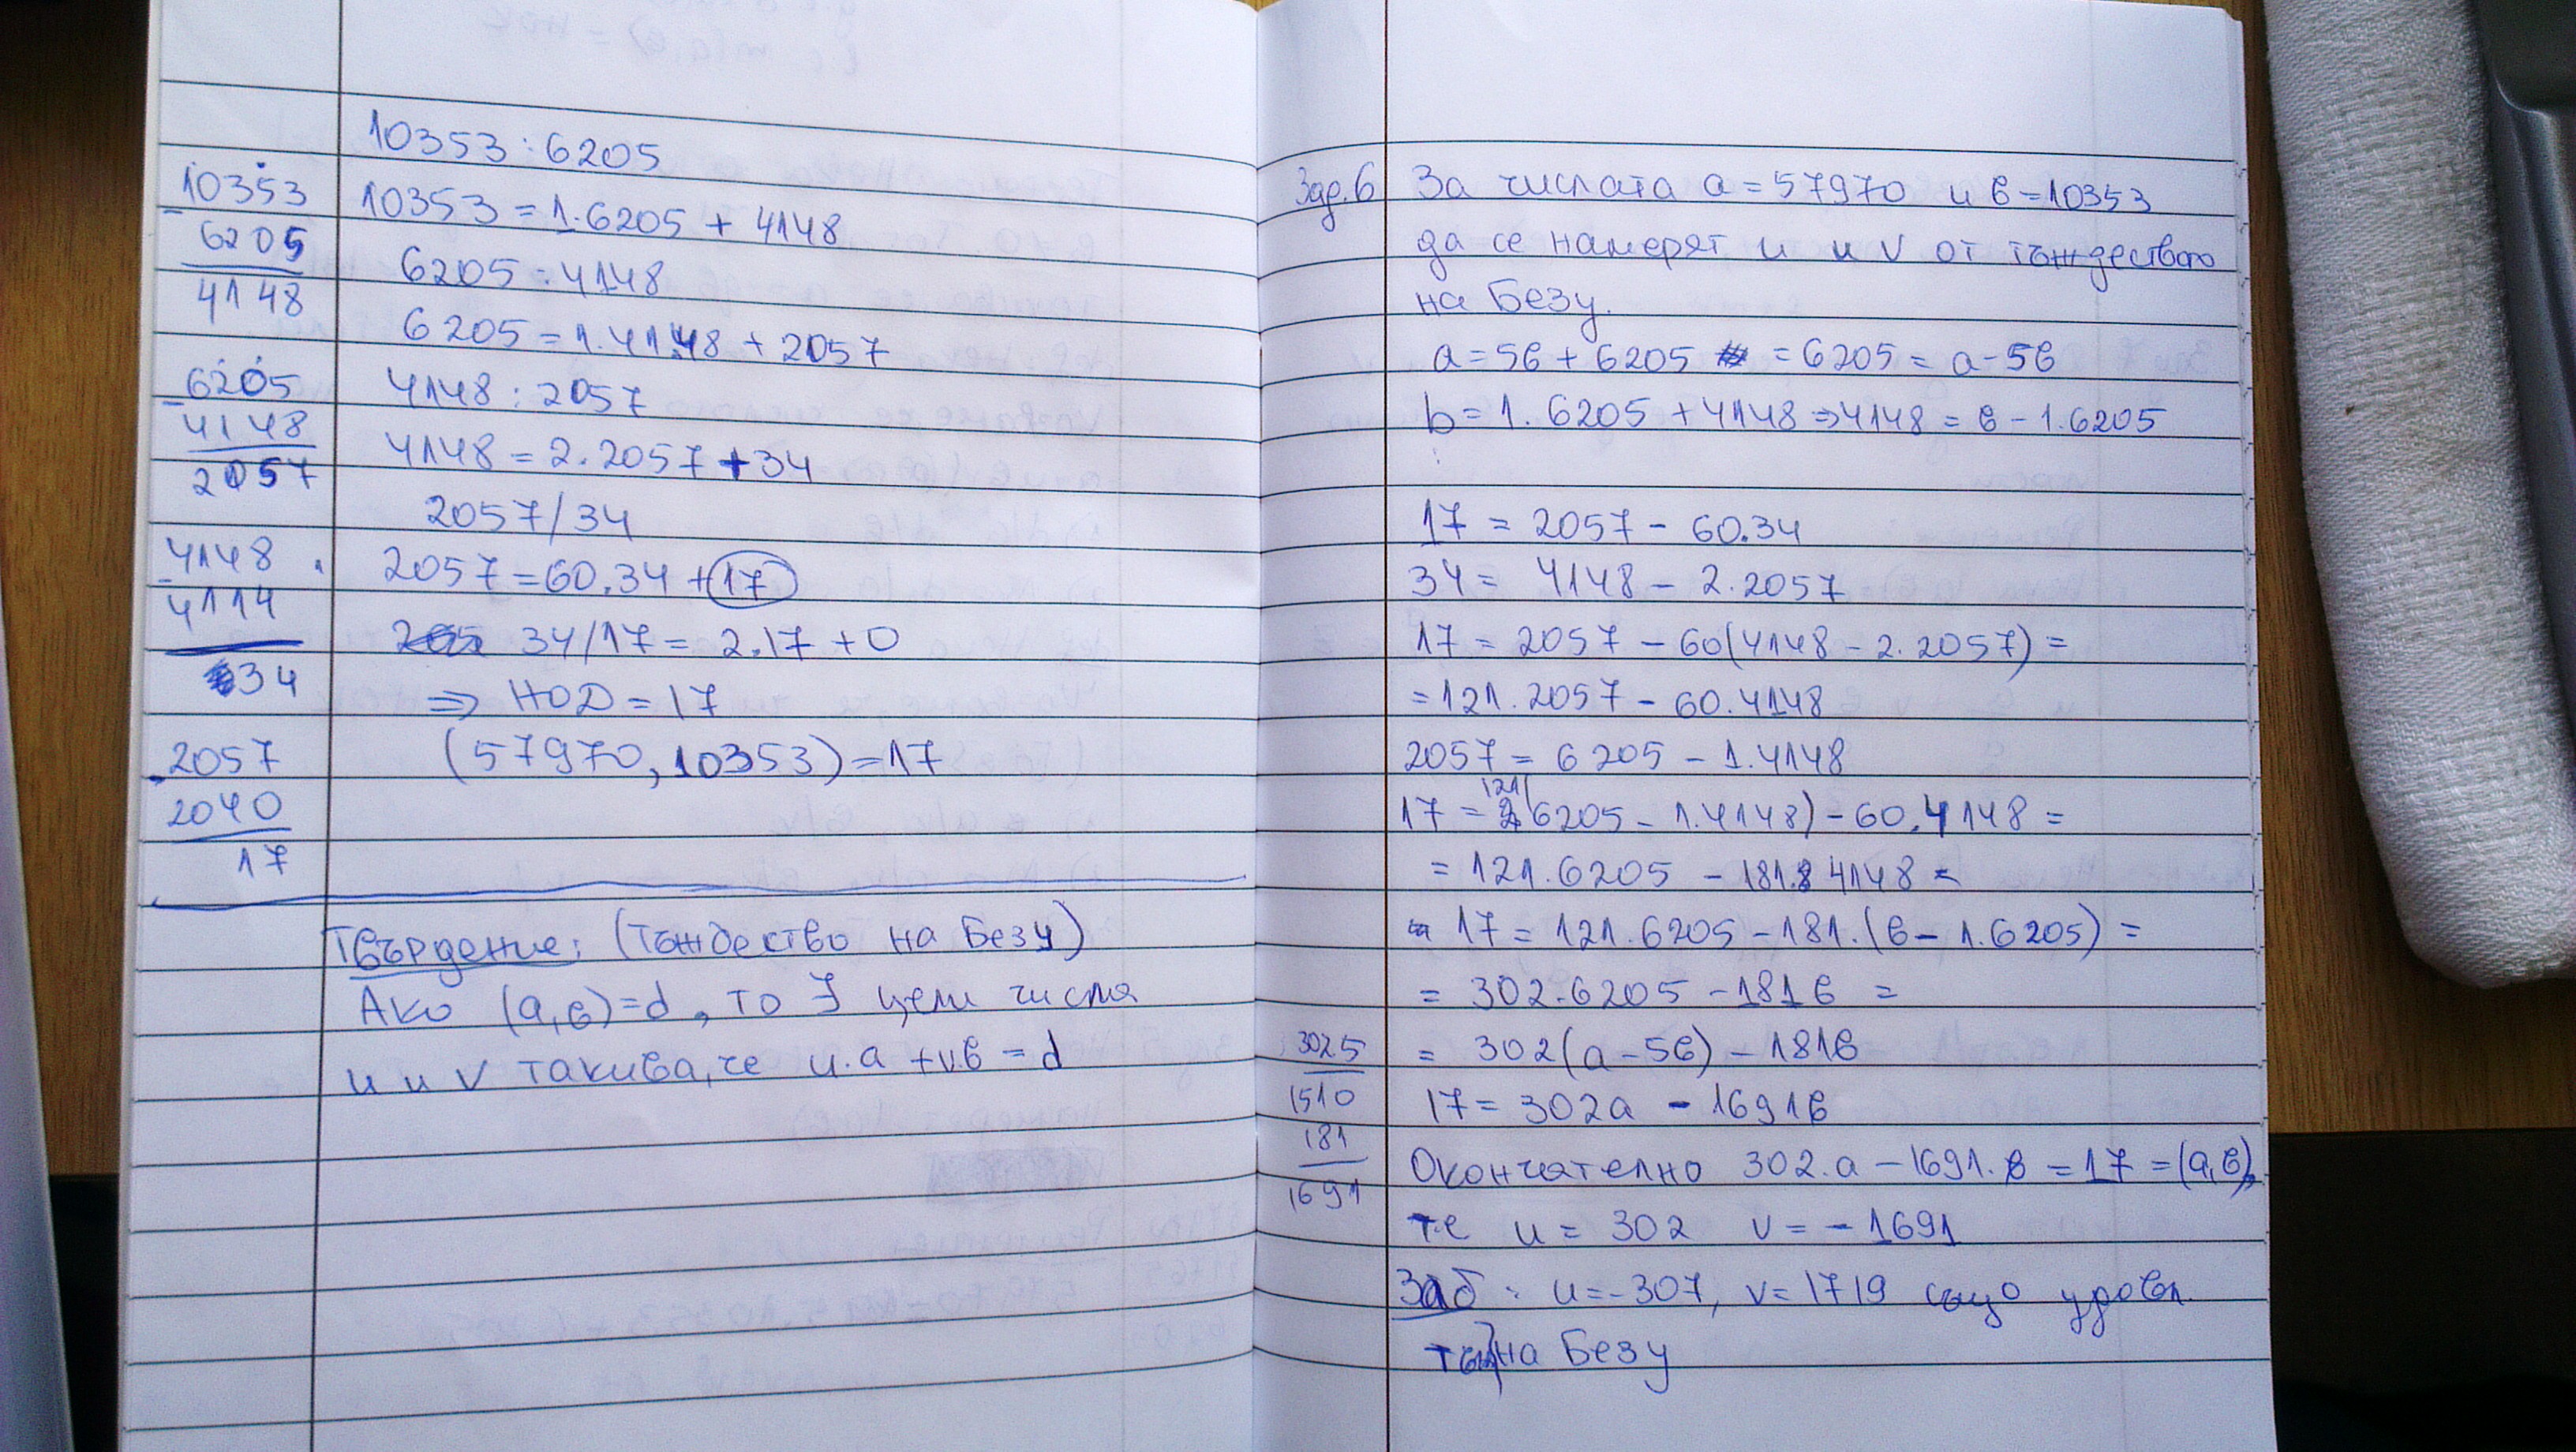 10353 : 6205
10353 = 1.6205 + 4148
6205 : 4148
6205 = 1.4148 + 2057
4148 : 2057
4148 = 2.2057 + 34
2057/34
2057 = 60.34 + 17
34/17 = 2.17 + 0
⇒ НОД = 17
(57970, 10353) = 17
10353
- 6205
4148
6205
- 4148
2057
4148
- 4114
34
2057
- 2040
17
Твърдение: (Тъждество на Безу)
Ако (a, в) = d, то ∃ цели числа
u и v такива, че u.a + v.в = d
Зад. 6 За числата a = 57970 и в = 10353
да се намерят u и v от тъждеството
на Безу.
a = 5в + 6205 = 6205 = a - 5в
b = 1. 6205 + 4148 ⇒ 4148 = в - 1.6205
:
17 = 2057 - 60.34
34 = 4148 - 2.2057
17 = 2057 - 60(4148 - 2.2057) =
= 121.2057 - 60.4148
2057 = 6205 - 1.4148
17 = 121(6205 - 1.4148) - 60.4148 =
= 121.6205 - 181. 4148
17 = 121.6205 - 181.(в - 1.6205) =
= 302.6205 - 181в =
= 302(a - 5в) - 181в
17 = 302a - 1691в
3025
1510
181
1691
Окончателно 302.a - 1691.в = 17 = (a, в),
т.е u = 302 v = - 1691
Заб: u = -307, v = 1719 също удовл.
на Безу